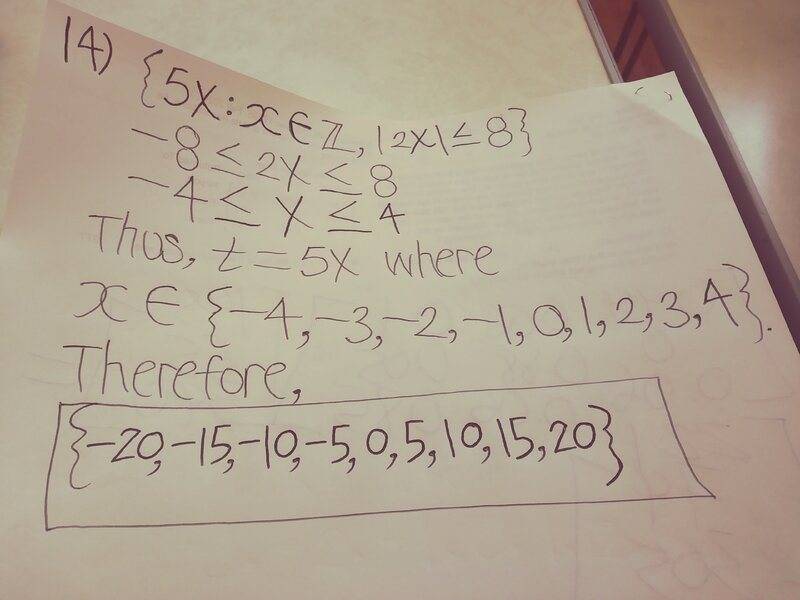 14) {5x : x ∈ ℤ, |2x| ≤ 8}
-8 ≤ 2x ≤ 8
-4 ≤ x ≤ 4
Thus, t = 5x where
x ∈ {-4, -3, -2, -1, 0, 1, 2, 3, 4}.
Therefore,
{-20, -15, -10, -5, 0, 5, 10, 15, 20}